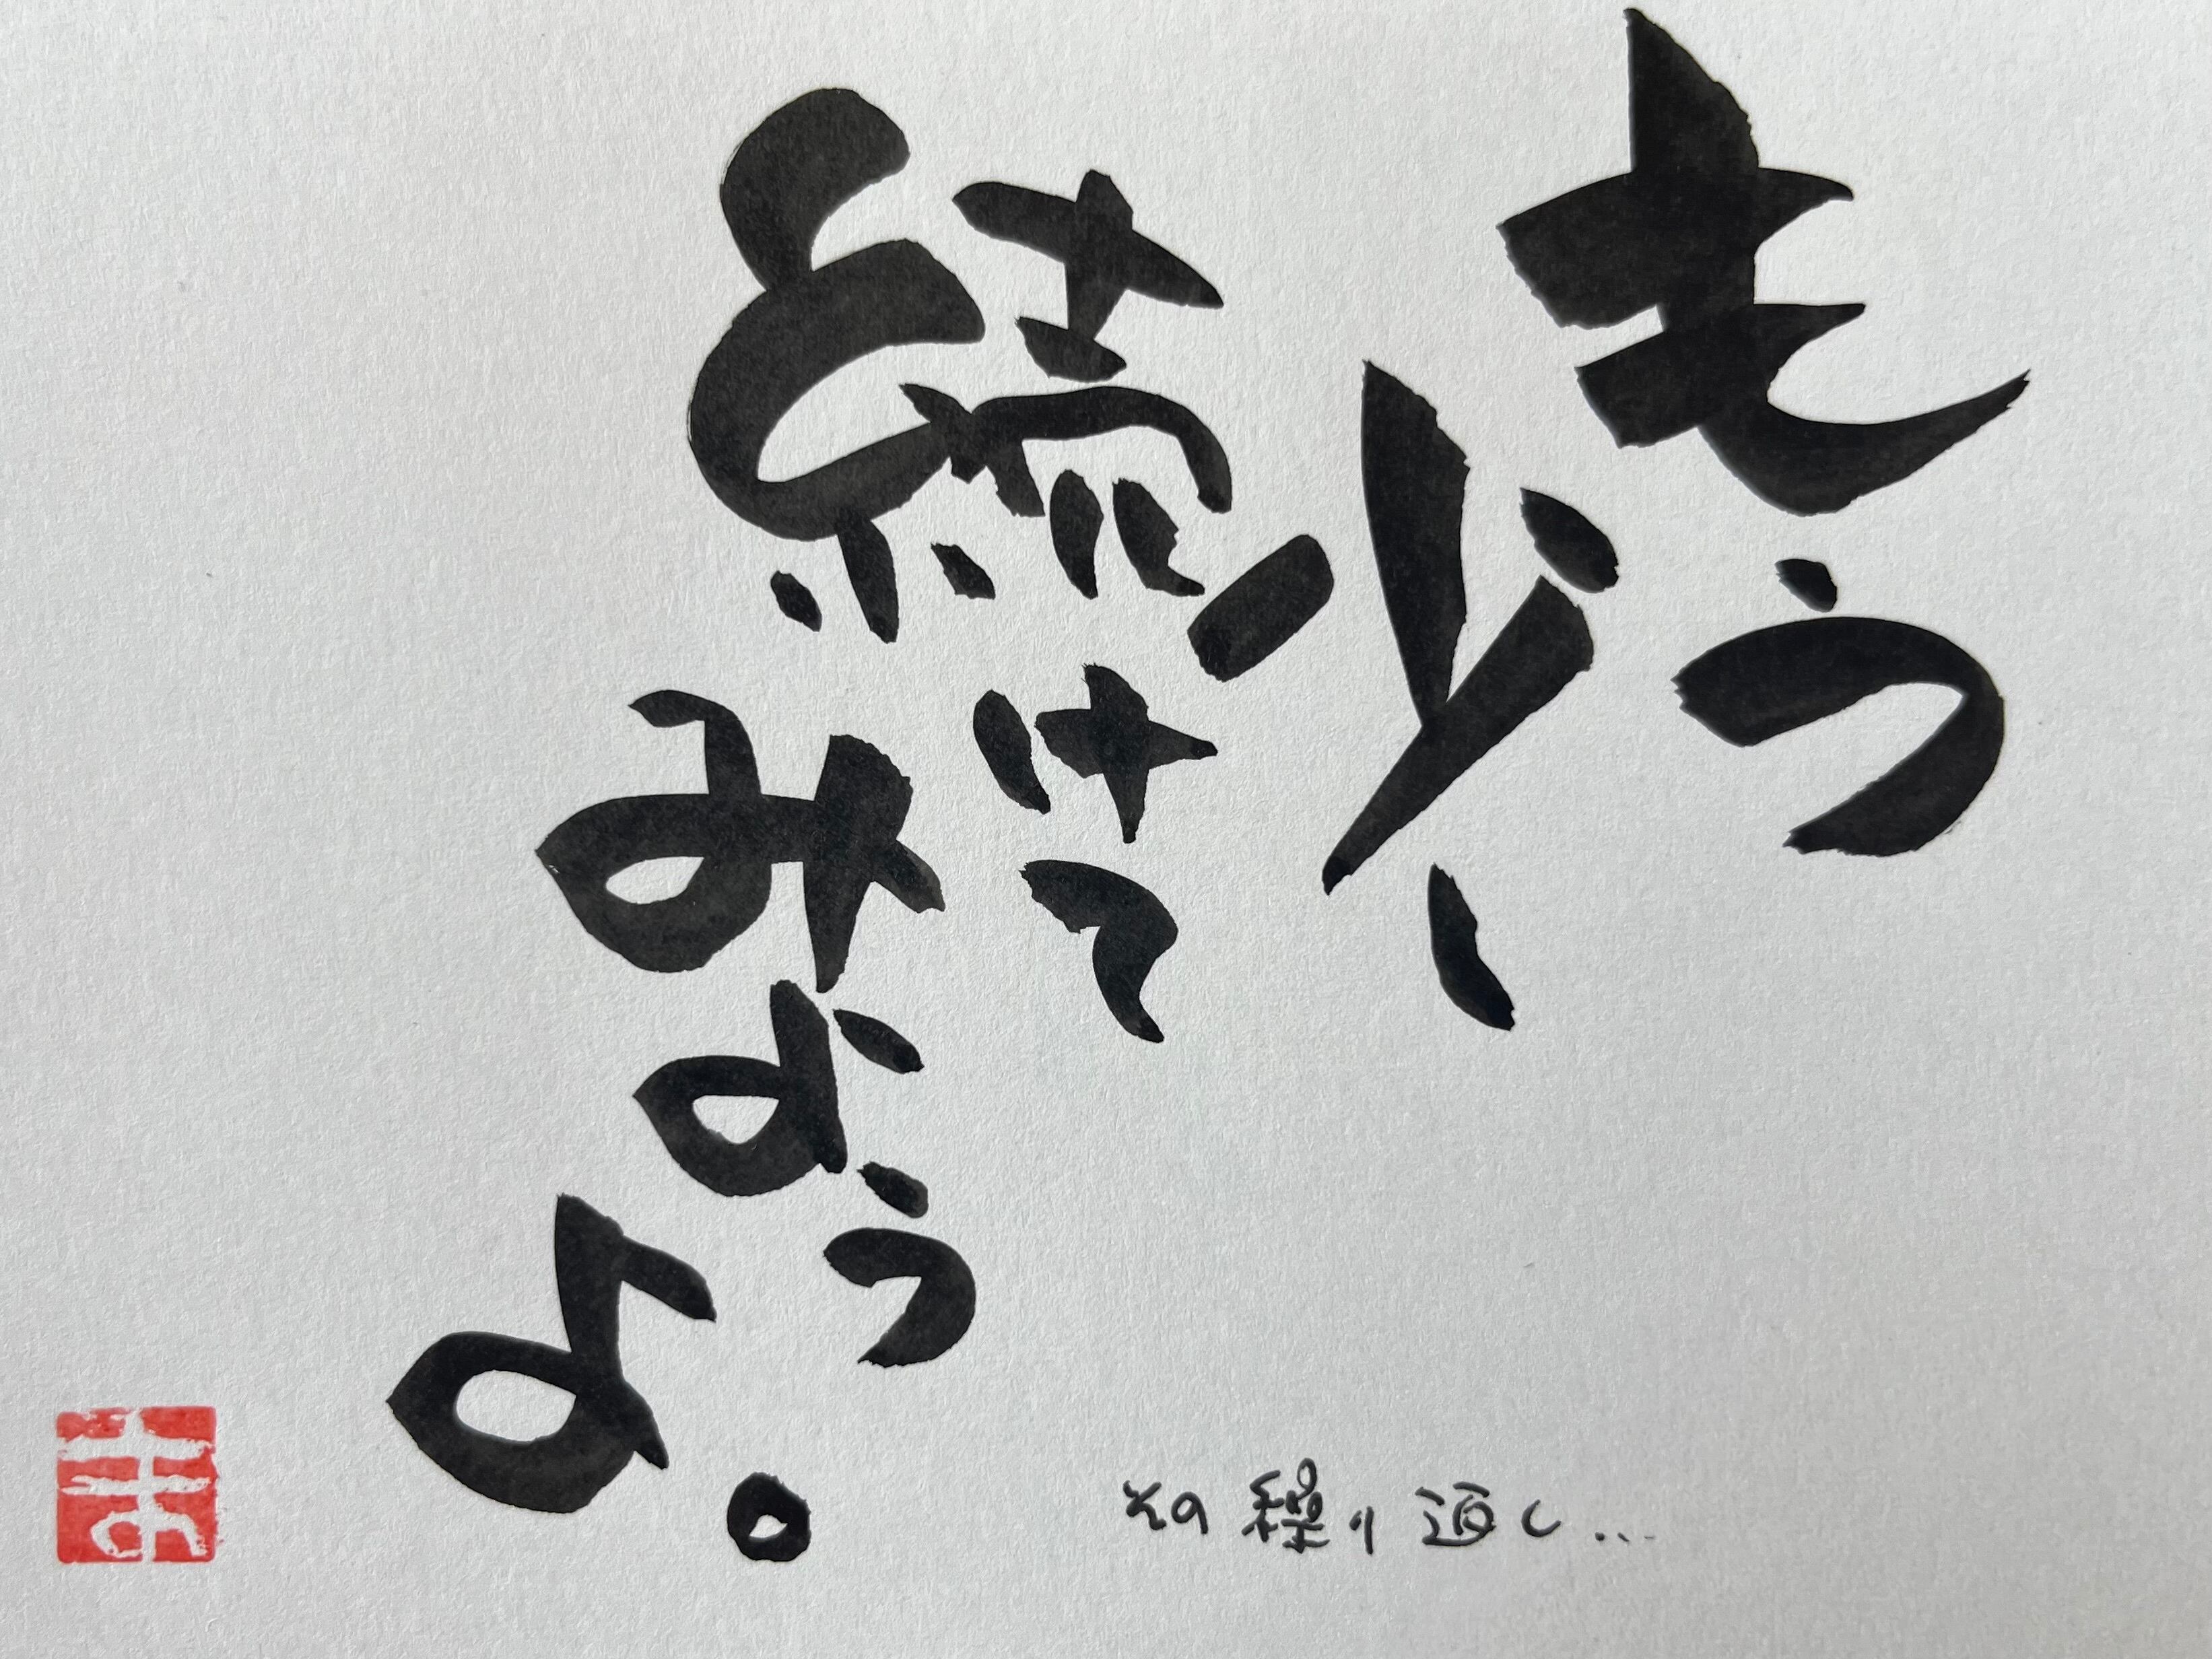 もう少し
続けて
みようよ。
その繰り返し...